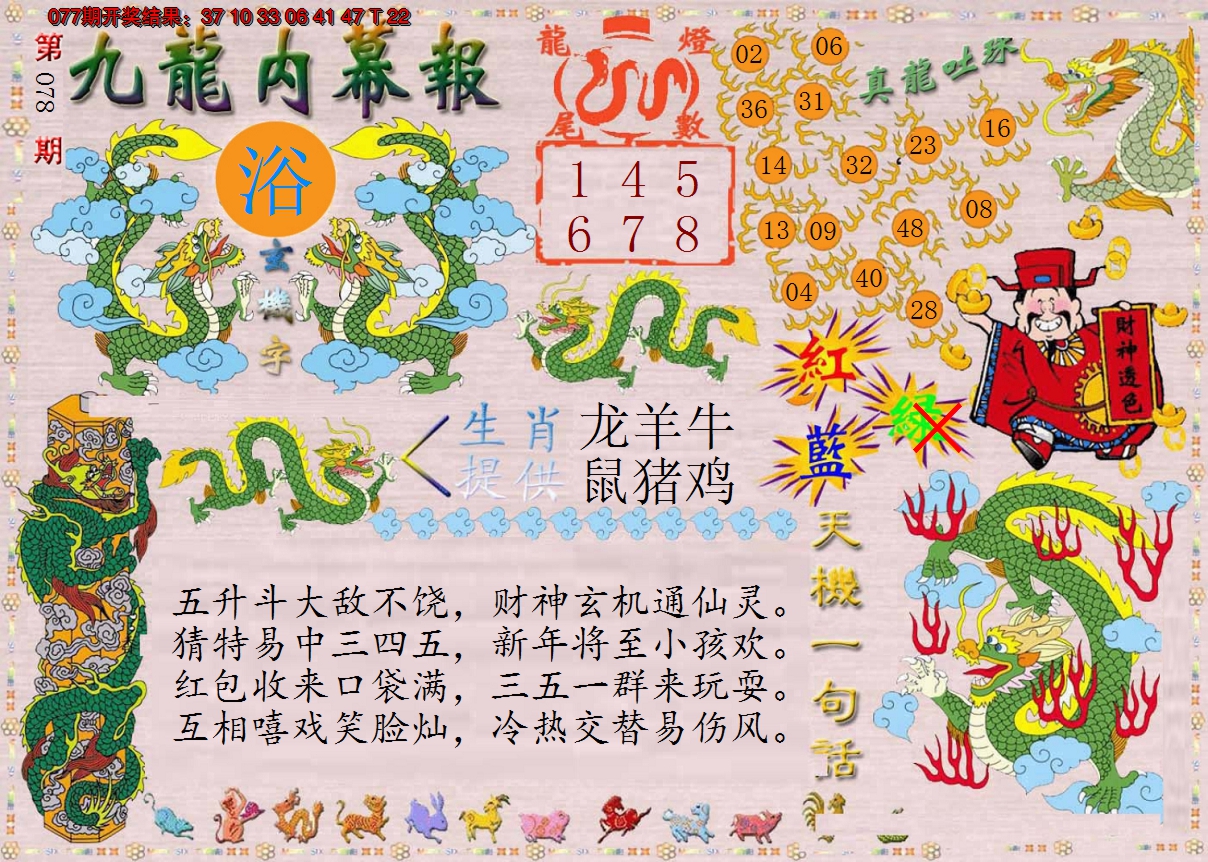 077期开奖结果：37 10 33 06 41 47 T 22
第
078
期
九龍内幕報
浴
玄
機
字
龍 燈
尾 數
1 4 5
6 7 8
真龍吐珠
02 06
36 31
14 32 23 16
13 09 48 08
04 40 28
紅
綠
藍
財神透色
生肖
提供
龙羊牛
鼠猪鸡
五升斗大敌不饶，财神玄机通仙灵。
猜特易中三四五，新年将至小孩欢。
红包收来口袋满，三五一群来玩耍。
互相嘻戏笑脸灿，冷热交替易伤风。
天機一句話